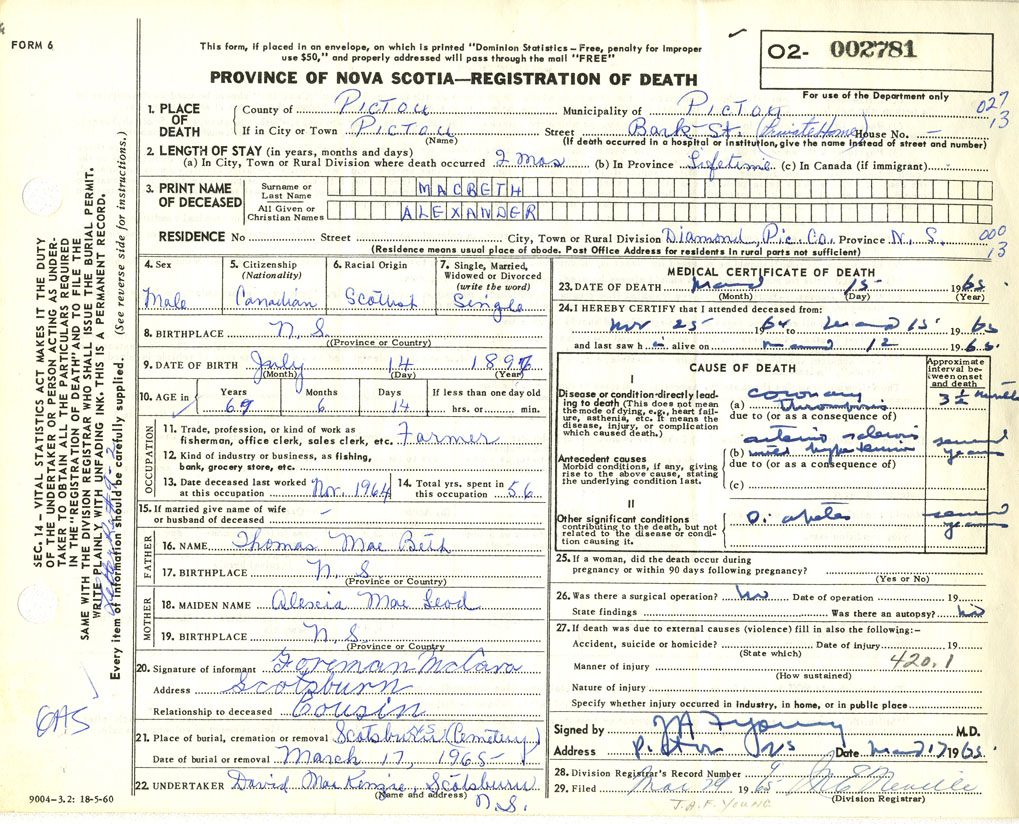 FORM 6
This form, if placed in an envelope, on which is printed "Dominion Statistics – Free, penalty for improper
use $50," and properly addressed will pass through the mail "FREE"
PROVINCE OF NOVA SCOTIA—REGISTRATION OF DEATH
O2- 002781
For use of the Department only
027
13
SEC. 14 – VITAL STATISTICS ACT MAKES IT THE DUTY
OF THE UNDERTAKER OR PERSON ACTING AS UNDER-
TAKER TO OBTAIN ALL THE PARTICULARS REQUIRED
IN THE "REGISTRATION OF DEATH" AND TO FILE THE
SAME WITH THE DIVISION REGISTRAR WHO SHALL ISSUE THE BURIAL PERMIT.
WRITE PLAINLY, WITH UNFADING INK. THIS IS A PERMANENT RECORD.
Every item of information should be carefully supplied. (See reverse side for instructions.)
1. PLACE OF DEATH
County of Pictou Municipality of Pictou
If in City or Town Pictou Street Bank St. (Private Home) House No. –
(Name) (If death occurred in a hospital or institution, give the name instead of street and number)
2. LENGTH OF STAY (in years, months and days)
(a) In City, Town or Rural Division where death occurred 2 Mos (b) In Province Lifetime (c) In Canada (if immigrant)
3. PRINT NAME OF DECEASED
Surname or Last Name MACBETH
All Given or Christian Names ALEXANDER
RESIDENCE No Street City, Town or Rural Division Diamond, Pic. Co. Province N. S. 000
13
(Residence means usual place of abode. Post Office Address for residents in rural parts not sufficient)
4. Sex Male
5. Citizenship (Nationality) Canadian
6. Racial Origin Scottish
7. Single, Married, Widowed or Divorced (write the word) Single
8. BIRTHPLACE N. S.
(Province or Country)
9. DATE OF BIRTH July 14 1897
(Month) (Day) (Year)
10. AGE in Years 69 Months 6 Days 14 If less than one day old hrs. or min.
OCCUPATION
11. Trade, profession, or kind of work as
fisherman, office clerk, sales clerk, etc. Farmer
12. Kind of industry or business, as fishing,
bank, grocery store, etc.
13. Date deceased last worked at this occupation Nov. 1964
14. Total yrs. spent in this occupation 56
15. If married give name of wife
or husband of deceased –
FATHER
16. NAME Thomas Mac Beth
17. BIRTHPLACE N. S.
(Province or Country)
MOTHER
18. MAIDEN NAME Alexcia Mac Leod
19. BIRTHPLACE N. S.
(Province or Country)
20. Signature of informant Foreman McCara
Address Scotsburn
Relationship to deceased Cousin
21. Place of burial, cremation or removal Scotsburn (Cemetery)
Date of burial or removal March 17, 1965
22. UNDERTAKER David MacKenzie, Scotsburn
(Name and address) N.S.
9004–3.2: 18-5-60
MEDICAL CERTIFICATE OF DEATH
23. DATE OF DEATH March 15 1965
(Month) (Day) (Year)
24. I HEREBY CERTIFY that I attended deceased from:
Nov 25 1964 to March 15 1965
and last saw him alive on March 12 1965
CAUSE OF DEATH
Approximate interval between onset and death
I
Disease or condition directly leading to death (This does not mean the mode of dying, e.g., heart failure, asthenia, etc. It means the disease, injury, or complication which caused death.)
(a) coronary thrombosis 3 1/2 months
due to (or as a consequence of)
Antecedent causes
Morbid conditions, if any, giving rise to the above cause, stating the underlying condition last.
arterio sclerosis
(b) with hypertension several years
due to (or as a consequence of)
(c)
II
Other significant conditions
contributing to the death, but not related to the disease or condition causing it.
Diabetes several years
25. If a woman, did the death occur during
pregnancy or within 90 days following pregnancy?
(Yes or No)
26. Was there a surgical operation? No Date of operation 19
State findings Was there an autopsy? No
27. If death was due to external causes (violence) fill in also the following:–
Accident, suicide or homicide? Date of injury 19
(State which)
Manner of injury 420.1
(How sustained)
Nature of injury
Specify whether injury occurred in industry, in home, or in public place
Signed by JAF Young M.D.
Address Pictou NS Date Mar 17 1965
28. Division Registrar's Record Number 9
29. Filed Mar 19 1965 Neville
(Division Registrar)
J.A.F. YOUNG